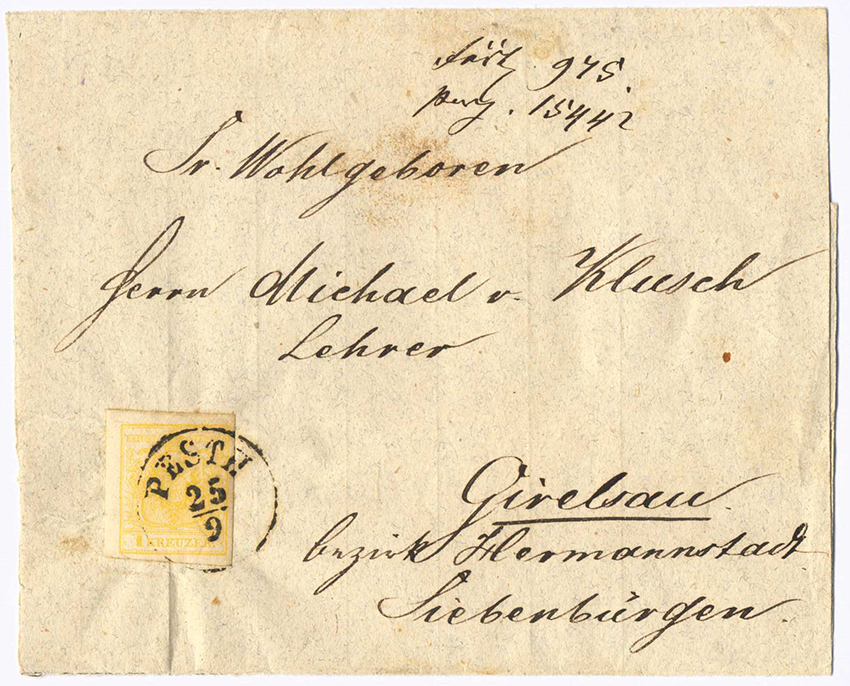 975
15442
Sr. Wohlgeboren
Herrn Michael v. Klusch
Lehrer
PESTH
25
9
1 KREUZER
Girelsau
bezirk Hermannstadt
Siebenbürgen.